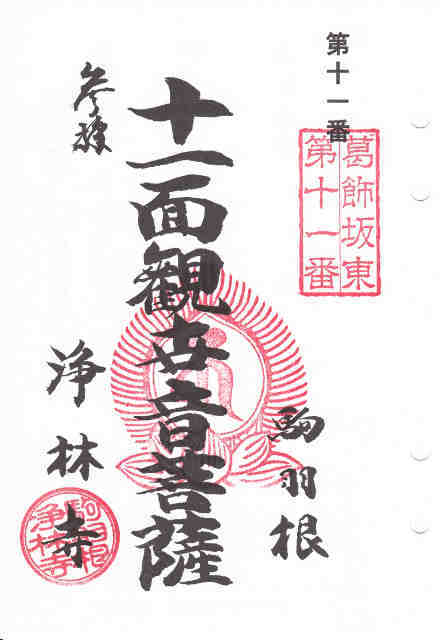 第十一番
葛飾坂東
第十一番
駒羽根
十一面観世音菩薩
浄林寺
駒羽根
浄林寺